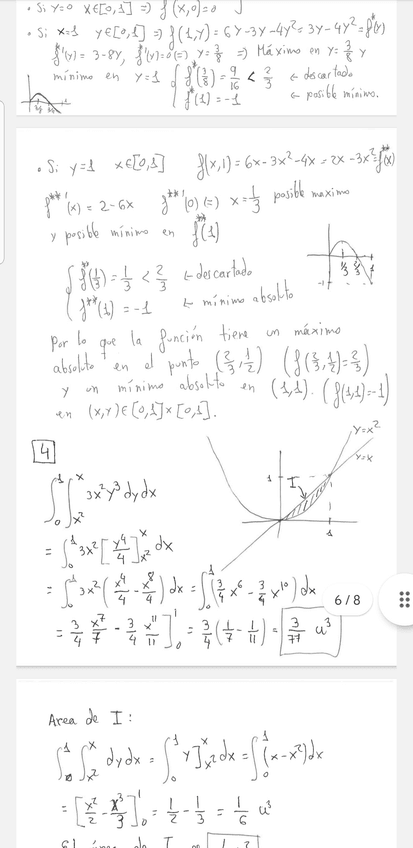 • Si y=0 x∈[0,1] ⇒ f(x,0)=0
• Si x=1 y∈[0,1] ⇒ f(1,y)=6y-3y-4y²=3y-4y²=f*(y)
f*'(y) = 3-8y, f*'(y)=0 (=) y=3/8 ⇒ Máximo en y=3/8 y
mínimo en y=1 { f*(3/8)=9/16 < 2/3 ← descartado
f*(1)=-1 ← posible mínimo.
• Si y=1 x∈[0,1] f(x,1)=6x-3x²-4x=2x-3x²=f**(x)
f**'(x) = 2-6x f**'(0) (=) x=1/3 posible maximo
y posible mínimo en f**(1)
{ f**(1/3)=1/3 < 2/3 ← descartado
f**(1) = -1 ← mínimo absoluto
1/3 2/3 1
-1
Por lo que la función tiene un máximo
absoluto en el punto (2/3,1/2) (f(2/3,1/2)=2/3)
y un mínimo absoluto en (1,1). (f(1,1)=-1)
en (x,y)∈[0,1]×[0,1].
4
y=x²
y=x
1 I
1
∫₀¹∫ₓ²ˣ 3x²y³dydx
= ∫₀¹ 3x² [y⁴/4]ₓ²ˣ dx
= ∫₀¹ 3x² (x⁴/4 - x⁸/4) dx = ∫₀¹ (3/4 x⁶ - 3/4 x¹⁰) dx
= 3/4 x⁷/7 - 3/4 x¹¹/11 ]₀¹ = 3/4 (1/7 - 1/11) = 3/77 u³
6/8
Area de I:
∫₀¹∫ₓ²ˣ dydx = ∫₀¹ y]ₓ²ˣ dx = ∫₀¹ (x-x²)dx
= [x²/2 - x³/3]₀¹ = 1/2 - 1/3 = 1/6 u³